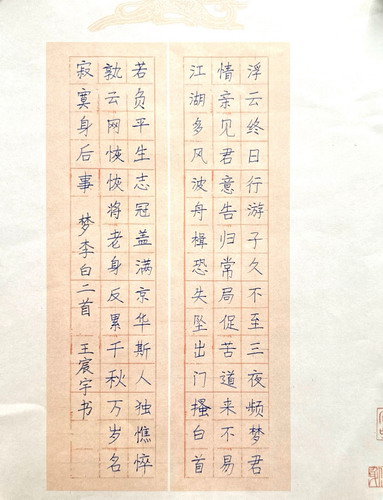 浮云终日行游子久不至三夜频梦君
情亲见君意告归常局促苦道来不易
江湖多风波舟楫恐失坠出门搔白首
若负平生志冠盖满京华斯人独憔悴
孰云网恢恢将老身反累千秋万岁名
寂寞身后事 梦李白二首 王宸宇书